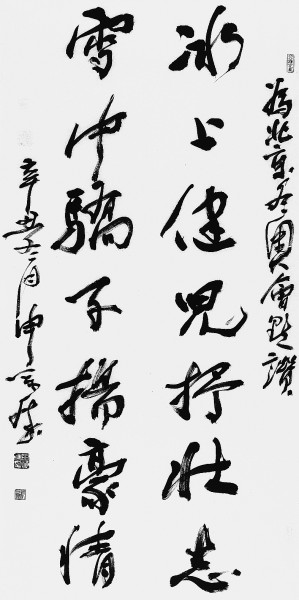 為北京冬奧會點讚
冰上健兒抒壯志
雪中驕子揚豪情
辛丑